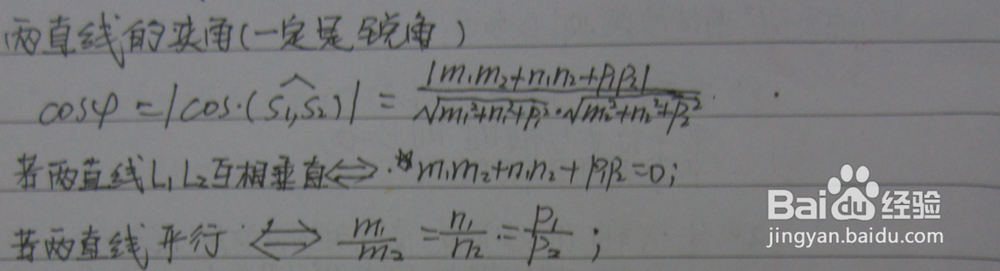 两直线的夹角(一定是锐角)
cosφ=|cos·(S₁,S₂)|=|m₁m₂+n₁n₂+p₁p₂|/√m₁²+n₁²+p₁²·√m₂²+n₂²+p₂²
若两直线L₁L₂互相垂直⇔m₁m₂+n₁n₂+p₁p₂=0;
若两直线平行⇔m₁/m₂=n₁/n₂=p₁/p₂;
Baidu经验
jingyan.baidu.com